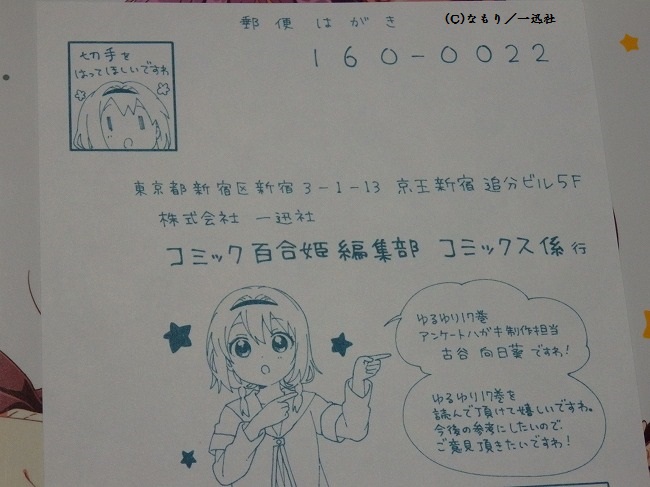 郵便はがき
(C)なもり／一迅社
160-0022
切手を
はってほしいですわ
東京都新宿区新宿3-1-13 京王新宿追分ビル5F
株式会社 一迅社
コミック百合姫編集部 コミックス係 行
ゆるゆり17巻
アンケートハガキ制作担当
古谷 向日葵ですわ!
ゆるゆり17巻を
読んで頂けて嬉しいですわ。
今後の参考にしたいので
ご意見頂きたいですわ!